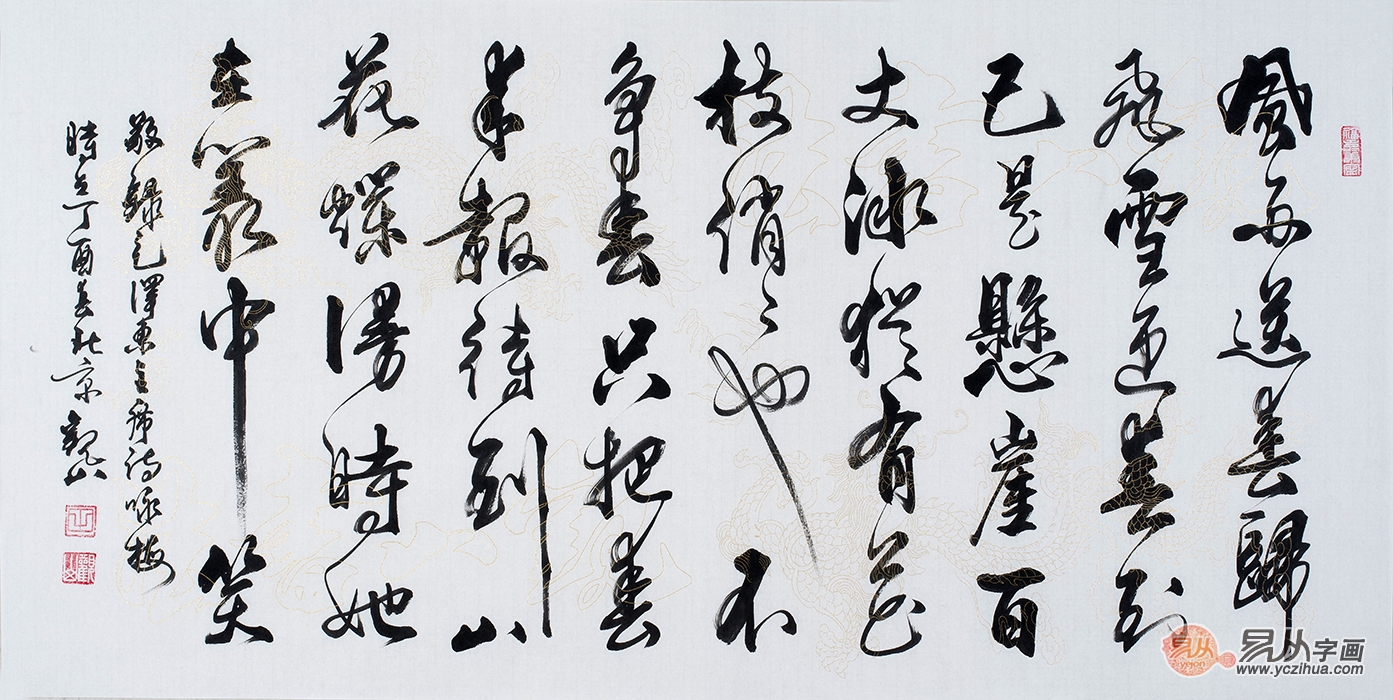 風雨送春歸
飛雪迎春到
已是懸崖百
丈冰猶有花
枝俏々也不
爭春只把春
來報待到山
花爛漫時她
在叢中笑
敬錄毛澤東主席詩詠梅
時在丁酉春北京觀山
易从字画
www.yczihua.com